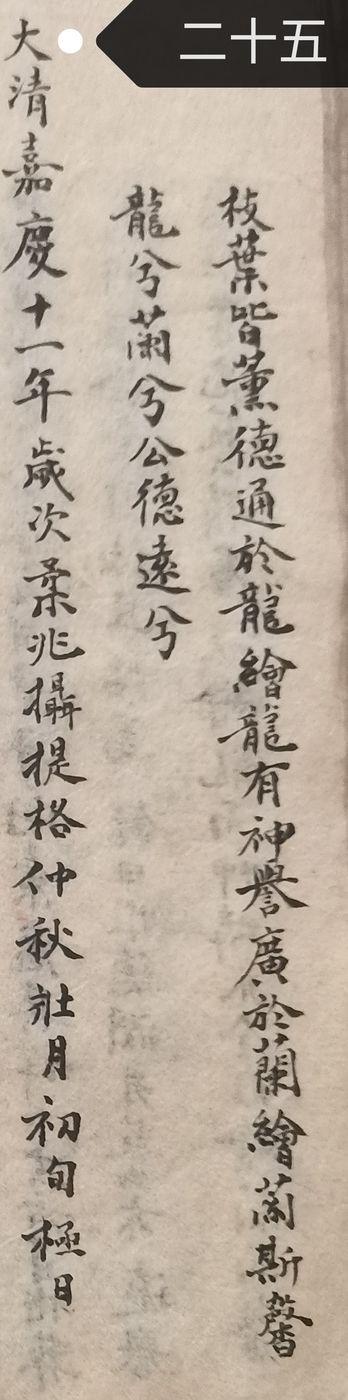 二十五
枝葉皆薰德通於龍繪龍有神譽廣於蘭繪蘭斯馨
龍兮蘭兮公德遠兮
大清嘉慶十一年歲次柔兆攝提格仲秋壯月初旬極日